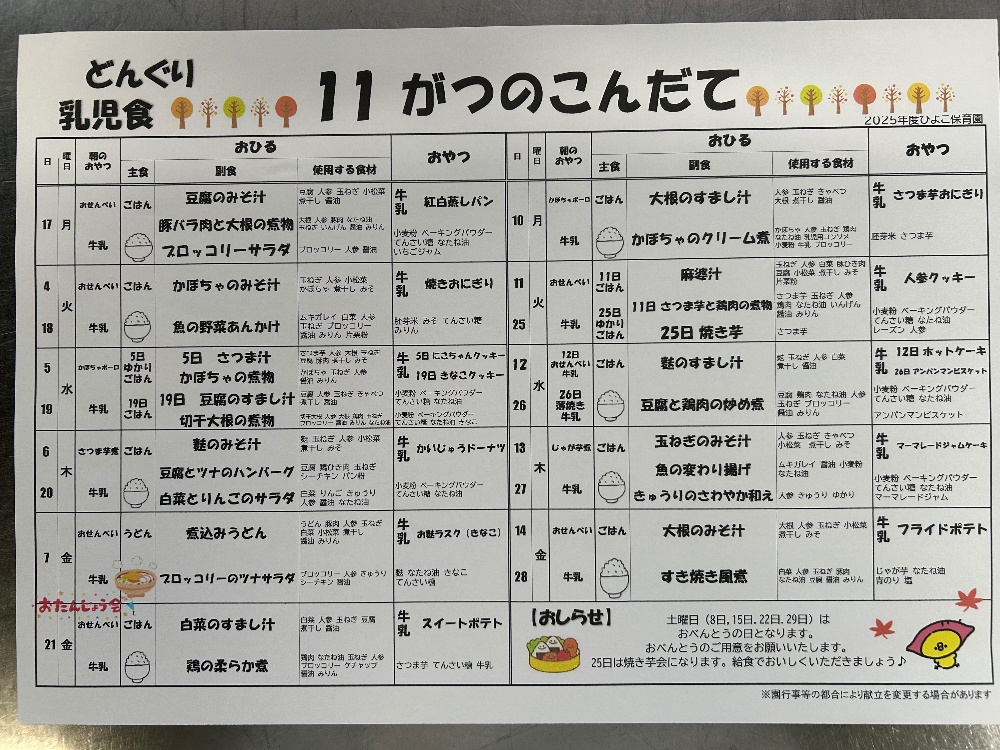 どんぐり
乳児食
11 がつのこんだて
2025年度ひよこ保育園
日 曜日 朝のおやつ おひる おやつ
主食 副食 使用する食材
17 月 おせんべい 牛乳 ごはん
豆腐のみそ汁
豆腐 人参 玉ねぎ 小松菜
煮干し 醤油
豚バラ肉と大根の煮物
大根 人参 豚肉 なたね油
玉ねぎ いんげん 醤油 みりん
ブロッコリーサラダ
ブロッコリー 人参 醤油
牛乳 紅白蒸しパン
小麦粉 ベーキングパウダー
てんさい糖 なたね油
いちごジャム
4 火 18 おせんべい 牛乳 ごはん
かぼちゃのみそ汁
玉ねぎ 人参 小松菜
かぼちゃ 煮干し みそ
魚の野菜あんかけ
ムキガレイ 白菜 人参
玉ねぎ ブロッコリー
醤油 みりん 片栗粉
牛乳 焼きおにぎり
胚芽米 みそ てんさい糖
みりん
5 水 19 かぼちゃボーロ 牛乳
5日 ゆかりごはん
19日 ごはん
5日 さつま汁
さつま芋 人参 大根 玉ねぎ
豆腐 豚肉 煮干し みそ
かぼちゃの煮物
かぼちゃ 玉ねぎ 人参
醤油 みりん
19日 豆腐のすまし汁
豆腐 人参 玉ねぎ きゃべつ
煮干し 醤油
切干大根の煮物
切干大根 人参 大根 鶏肉 玉ねぎ
ブロッコリー 醤油 みりん なたね油
牛乳 5日 にこちゃんクッキー
19日 きなこクッキー
小麦粉 ベーキングパウダー
てんさい糖 なたね油
小麦粉 ベーキングパウダー
てんさい糖 なたね油 きなこ
6 木 20 さつま芋煮 牛乳 ごはん
麩のみそ汁
麩 玉ねぎ 人参 小松菜
煮干し みそ
豆腐とツナのハンバーグ
豆腐 鶏ひき肉 玉ねぎ
シーチキン パン粉
白菜とりんごのサラダ
白菜 りんご きゅうり
人参 醤油 なたね油
牛乳 かいじゅうドーナツ
小麦粉 ベーキングパウダー
てんさい糖 なたね油
7 金 おせんべい 牛乳 うどん
煮込みうどん
うどん 豚肉 人参 玉ねぎ
白菜 小松菜 煮干し
醤油 みりん
ブロッコリーのツナサラダ
ブロッコリー 人参 きゅうり
シーチキン 醤油
牛乳 お麩ラスク（きなこ）
麩 なたね油 きなこ
てんさい糖
おたんじょう会
21 金 おせんべい 牛乳 ごはん
白菜のすまし汁
白菜 人参 玉ねぎ 豆腐
煮干し 醤油
鶏の柔らか煮
鶏肉 なたね油 玉ねぎ 人参
ブロッコリー ケチャップ
醤油 みりん
牛乳 スイートポテト
さつま芋 てんさい糖 牛乳
日 曜日 朝のおやつ おひる おやつ
主食 副食 使用する食材
10 月 かぼちゃボーロ 牛乳 ごはん
大根のすまし汁
人参 玉ねぎ きゃべつ
大根 煮干し 醤油
かぼちゃのクリーム煮
かぼちゃ 人参 玉ねぎ 鶏肉
なたね油 乳児用コンソメ
小麦粉 牛乳 ブロッコリー
牛乳 さつま芋おにぎり
胚芽米 さつま芋
11 火 25 おせんべい 牛乳
11日 ごはん
25日 ゆかりごはん
麻婆汁
玉ねぎ 人参 白菜 豚ひき肉
豆腐 小松菜 煮干し みそ
片栗粉
11日 さつま芋と鶏肉の煮物
さつま芋 玉ねぎ 人参
鶏肉 なたね油 いんげん
醤油 みりん
25日 焼き芋
さつま芋
牛乳 人参クッキー
小麦粉 ベーキングパウダー
てんさい糖 なたね油
レーズン 人参
12 水 26
12日 おせんべい 牛乳
26日 薄焼き 牛乳
ごはん
麩のすまし汁
麩 玉ねぎ 人参 白菜
煮干し 醤油
豆腐と鶏肉の炒め煮
豆腐 鶏肉 なたね油 人参
玉ねぎ ブロッコリー
醤油 みりん
牛乳 12日 ホットケーキ
26日 アンパンマンビスケット
小麦粉 ベーキングパウダー
てんさい糖 なたね油
アンパンマンビスケット
13 木 27 じゃが芋煮 牛乳 ごはん
玉ねぎのみそ汁
人参 玉ねぎ きゃべつ
小松菜 煮干し みそ
魚の変わり揚げ
ムキガレイ 醤油 小麦粉
なたね油
きゅうりのさわやか和え
人参 きゅうり ゆかり
牛乳 マーマレードジャムケーキ
小麦粉 ベーキングパウダー
てんさい糖 なたね油
マーマレードジャム
14 金 28 おせんべい 牛乳 ごはん
大根のみそ汁
大根 人参 玉ねぎ 小松菜
煮干し みそ
すき焼き風煮
白菜 人参 玉ねぎ 豚肉
なたね油 豆腐 醤油 みりん
牛乳 フライドポテト
じゃが芋 なたね油
青のり 塩
【おしらせ】
土曜日（8日，15日，22日，29日）は
おべんとうの日となります。
おべんとうのご用意をお願いいたします。
25日は焼き芋会になります。給食でおいしくいただきましょう♪
※園行事等の都合により献立を変更する場合があります